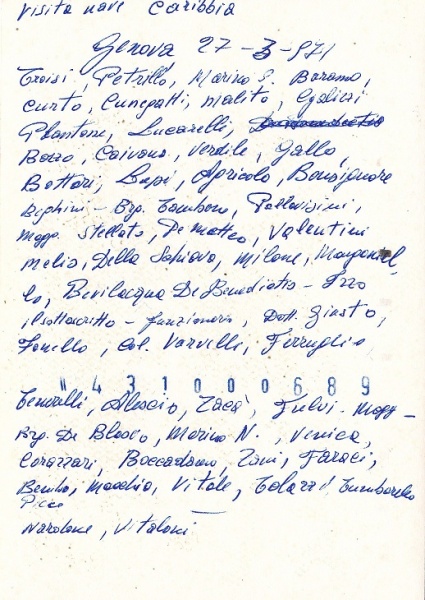 Visita nave Caribbia
Genova 27-3-971
Troisi, Petrillo, Marino S. Baramo,
Curto, Cunepatti, Malito, Egalini
Plantone, Lucarelli,
Bosco, Caivano, Verdile, Gallo,
Bottari, Lupi, Apricolo, Bonsignore
Bighini - Brg. Tamboro, Pallavisini,
Magg. Stellato, De Matteo, Valentini
Melis, Della Schiavo, Milone, Manganiel
lo, Bevilacqua De Benedictis - Izzo
il sottoscritto - funzionario, Dott. Giusto,
Fanello, Col. Varvelli, Ferruglio
431000689
Alescio, Zaca, Fulvi. Magg -
Brg. De Blasio, Marino N., Venica,
Corazzari, Boccadamo, Zoni, Faraci,
Bembo, Macchia, Vitale, Colazzi, Tumbarello
Picco
Nardone, Vitaloni